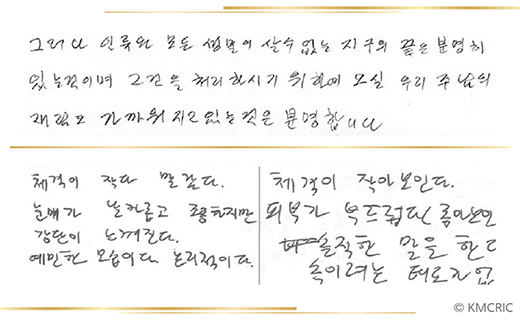 그러나 인류와 모든 생물이 살수 없는 지구의 끝은 분명히
있는것이며 그것을 처리하시기 위하여 오실 우리 주님의
재림도 가까워 지고 있는 것은 분명합니다
체격이 작다 말랐다.
눈매가 날카롭고 조용하지만
강단이 느껴진다.
예민한 모습이다. 논리적이다.
체격이 작아보인다.
피부가 부드럽다(좋아보인
솔직한 말을 한다
속이려는 태도가 없
© KMCRIC